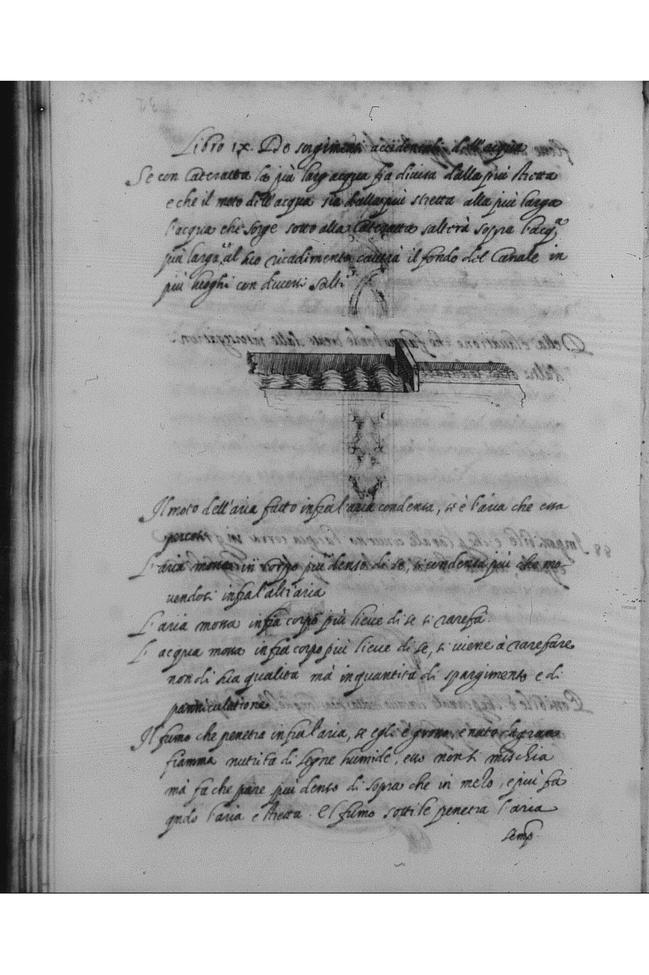 Libro ix. De sorgimenti accidentali dell'acqua
Se con Cateratta la più larg acqua fia divisa dalla più stretta
e che il moto dell'acqua sia dalla più stretta alla più larga
l'acqua che sorge sotto alla Cateratta salterà sopra l'acqa
più larga, al suo ricadimento cavarà il fondo del Canale in
più luoghi con diversi salti
Il moto dell'aria facto infra l'aria condensa, si è l'aria che essa
percote
L'aria mossa in corpo più denso di se, si condensa più che mo-
vendosi infra l'altr'aria
L'aria mossa infra corpo più lieve di se si rarefà.
L'acqua mossa infra corpo più lieve di se, si viene à rarefare
non di sua qualità mà in quantità di spargimento e di
panniculatione
Il fumo che penetra infra l'aria, se egli è grosso, e nato da gran
fiamma nutrita di legne humide, esso non si mischia
mà fa che pare più denso di sopra che in mezo, e più fa
qndo l'aria e stretta. El fumo sottile penetra l'aria
semp.